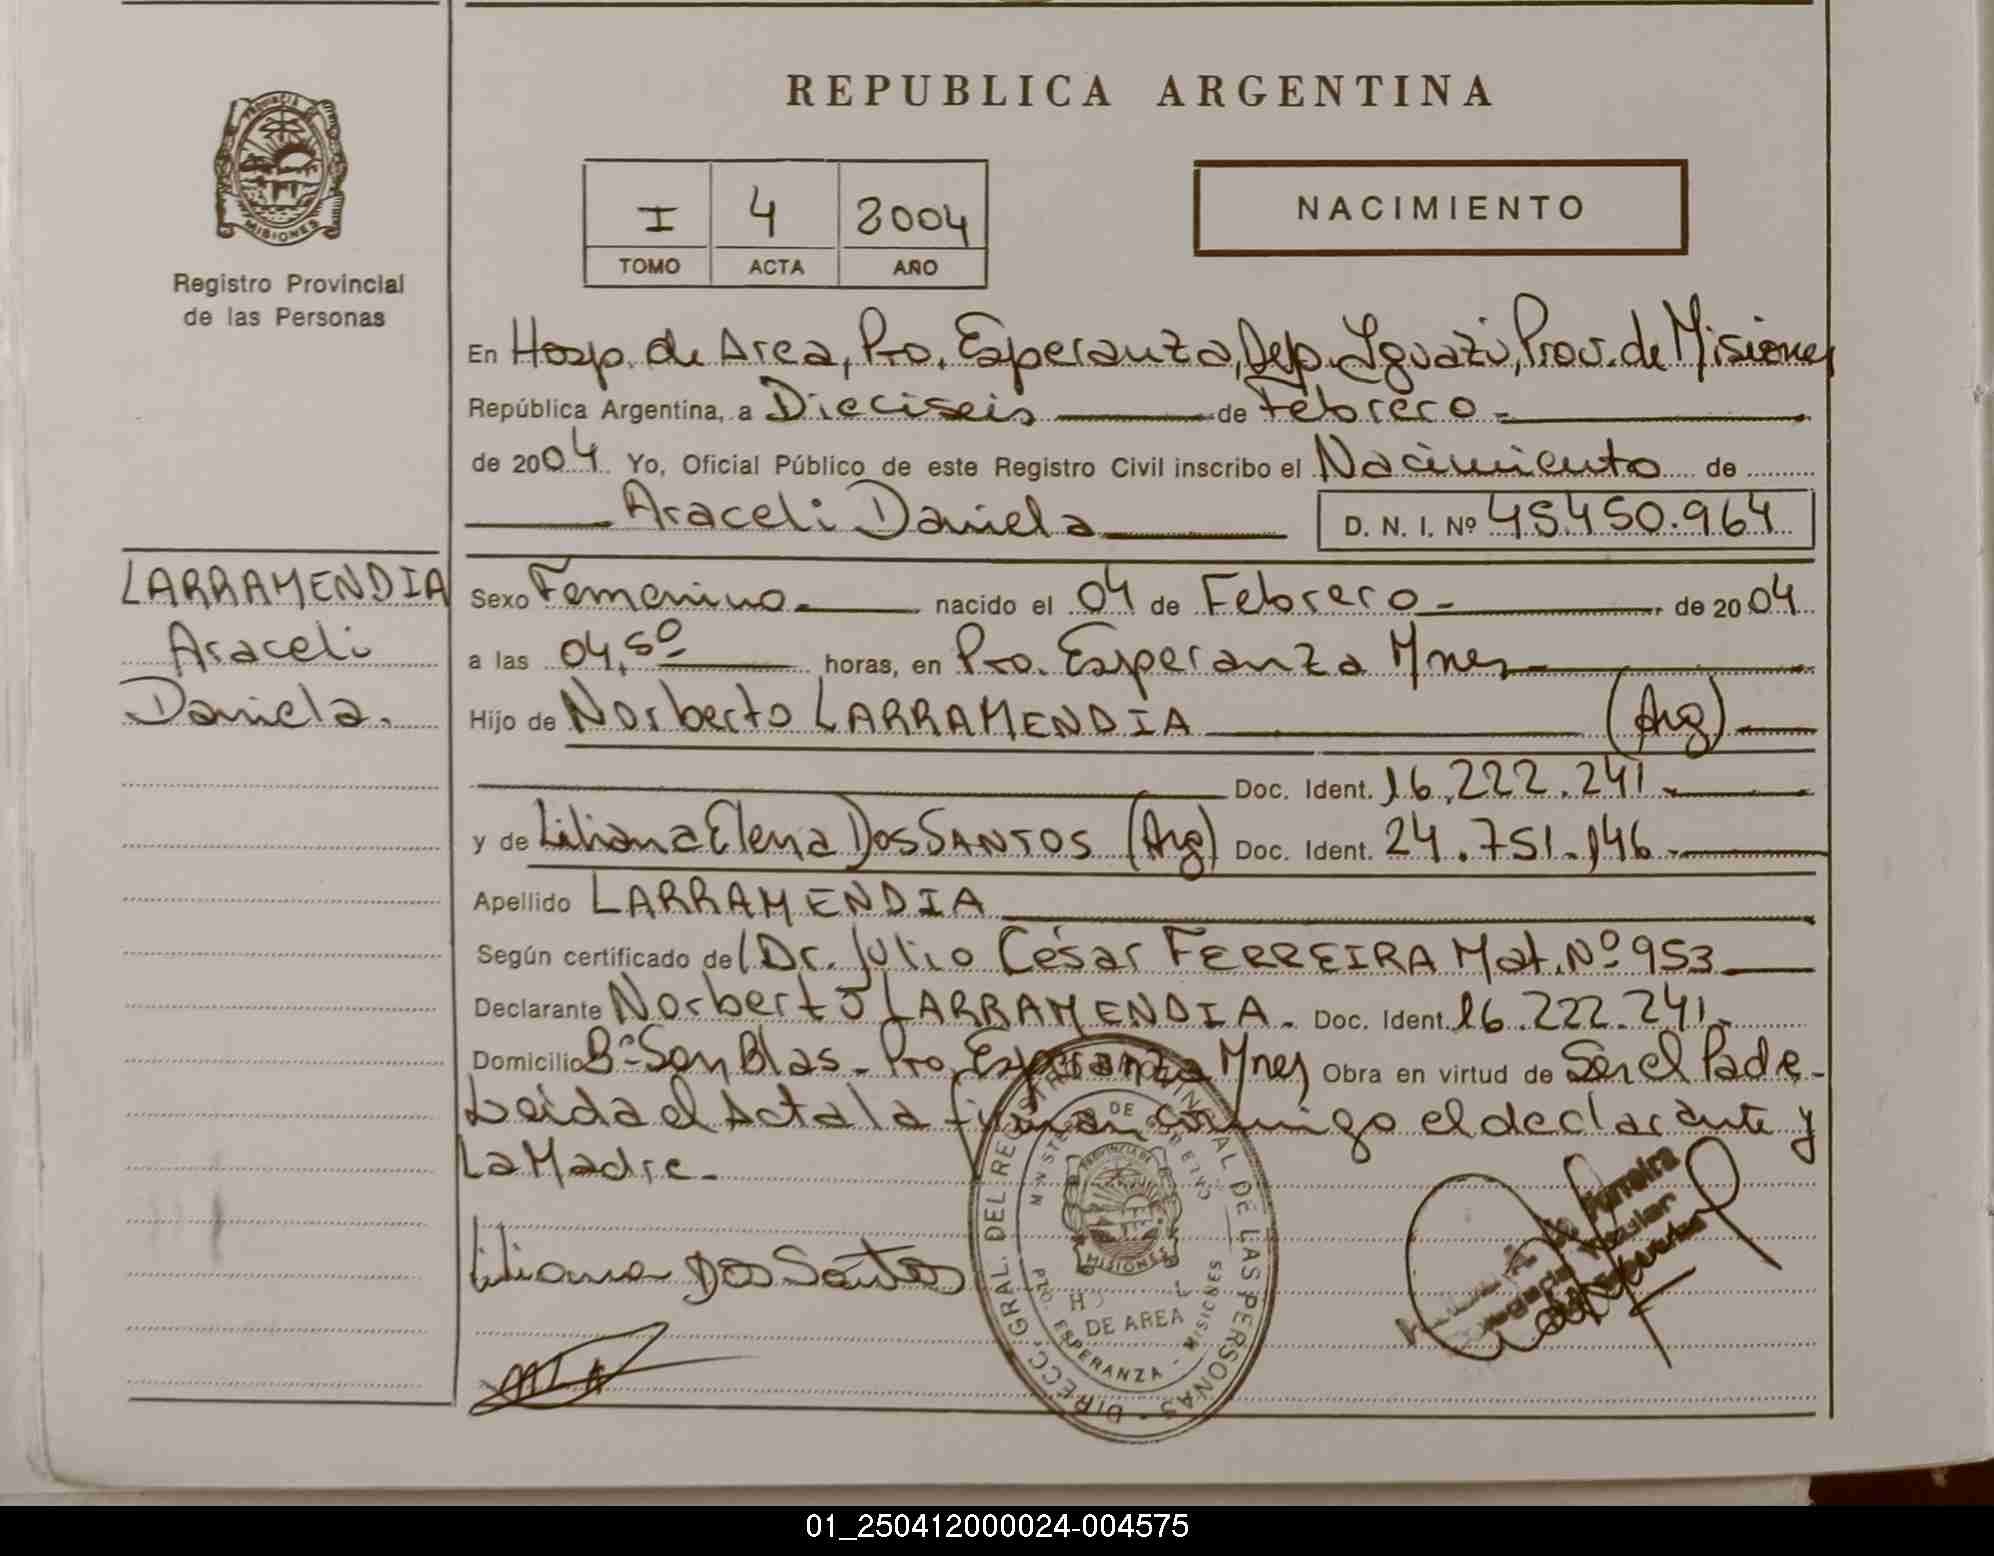 REPUBLICA ARGENTINA
PROVINCIA DE
MISIONES
Registro Provincial
de las Personas
I 4 2004
TOMO ACTA AÑO
NACIMIENTO
En Hosp. de Area, Pto. Esperanza, Dep. Iguazú, Prov. de Misiones
República Argentina, a Dieciseis de Febrero
de 2004 Yo, Oficial Público de este Registro Civil inscribo el Nacimiento de
Araceli Daniela D. N. I. Nº 45.450.964
LARRAMENDIA
Araceli
Daniela.
Sexo Femenino nacido el 04 de Febrero de 2004
a las 04,50 horas, en Pto. Esperanza Mnes
Hijo de Norberto LARRAMENDIA (Arg)
Doc. Ident. 16.222.241
y de Liliana Elena DOS SANTOS (Arg) Doc. Ident. 24.751.146
Apellido LARRAMENDIA
Según certificado del Dr. Julio César FERREIRA Mat. Nº 953
Declarante Norberto LARRAMENDIA. Doc. Ident. 16.222.241
Domicilio Bº San Blas - Pto. Esperanza Mnes Obra en virtud de Ser el Padre.
Leida el Acta la firman conmigo el declarante y
La Madre.
Liliana Dos Santos
DIRECC. GRAL. DEL REGISTRO PROVINCIAL DE LAS PERSONAS
MINISTERIO DE
PROVINCIA DE
MISIONES
DE AREA
PTO. ESPERANZA - MISIONES
de Ferreira
Titular
01_250412000024-004575